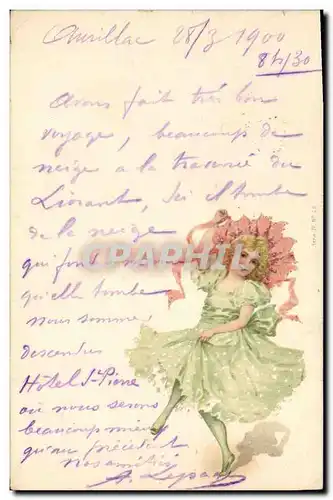 Aurillac 28/3 1900
8h/30
Avons fait très bon
voyage, beaucoup de
neige a la traversée du
Lioran, Ici il tombe
de la neige
qui fond
qu'elle tombe
nous sommes
descendus
Hôtel St Pierre
où nous serons
beaucoup mieux
qu'au précédent
nos amitiés
CPArama